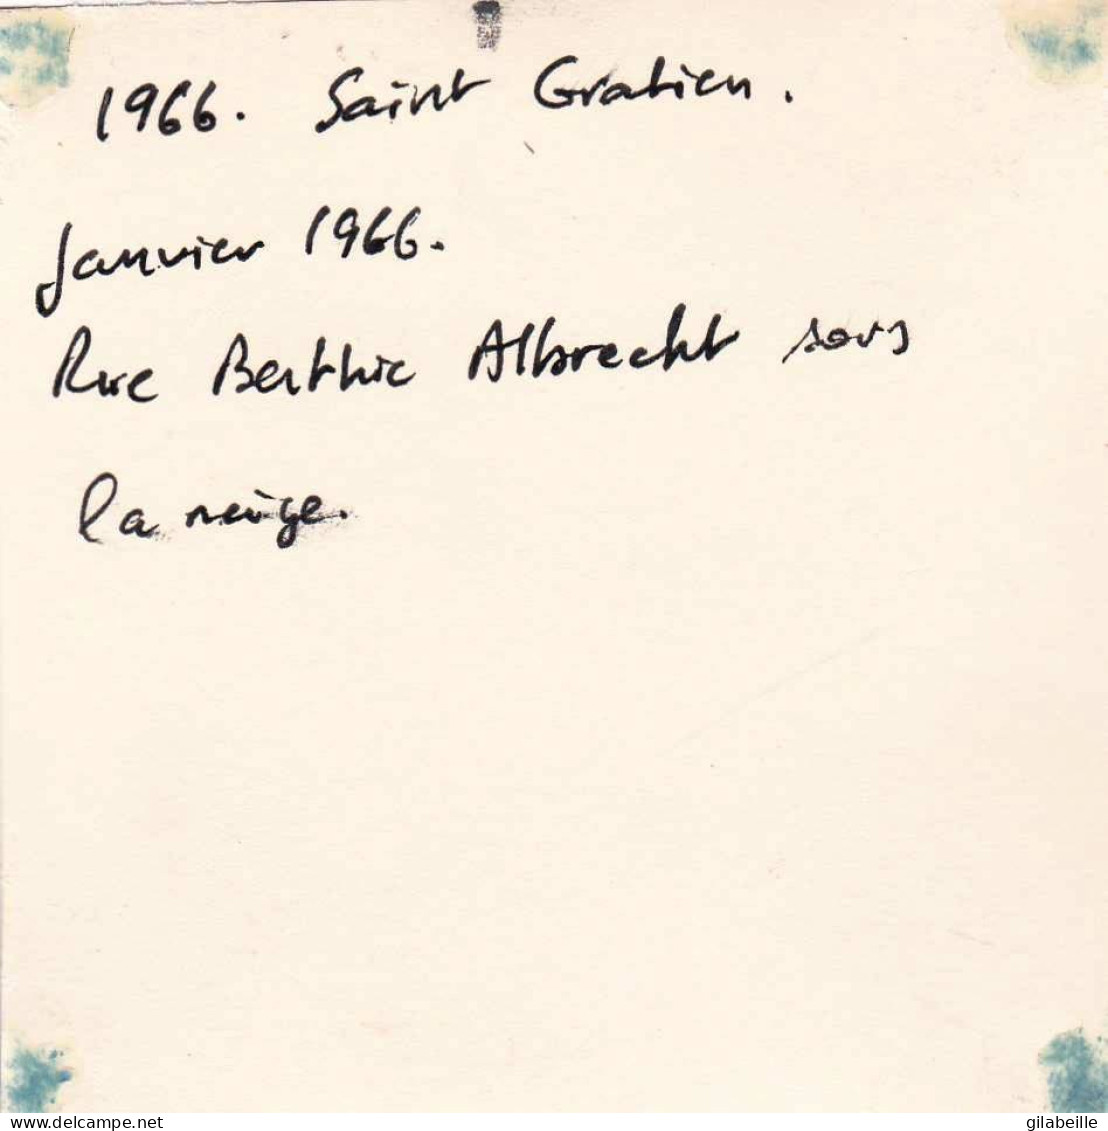 1966. Saint Gratien.
Janvier 1966.
Rue Berthie Albrecht sous
la neige.
delcampe.net
gilabeille